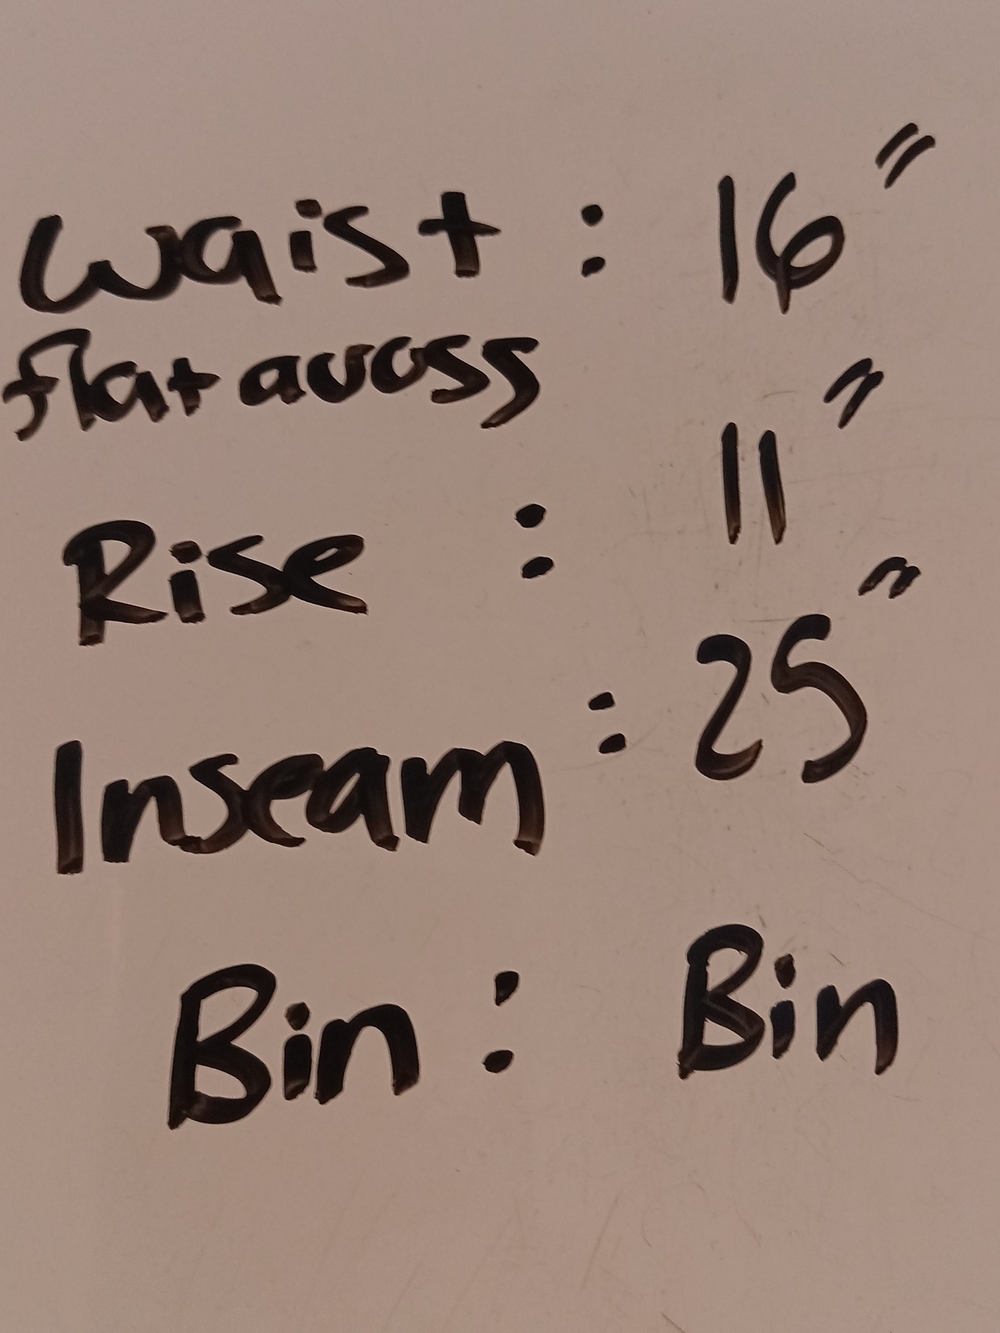 Waist : 16"
flat across
Rise : 11"
Inseam : 25"
Bin : Bin